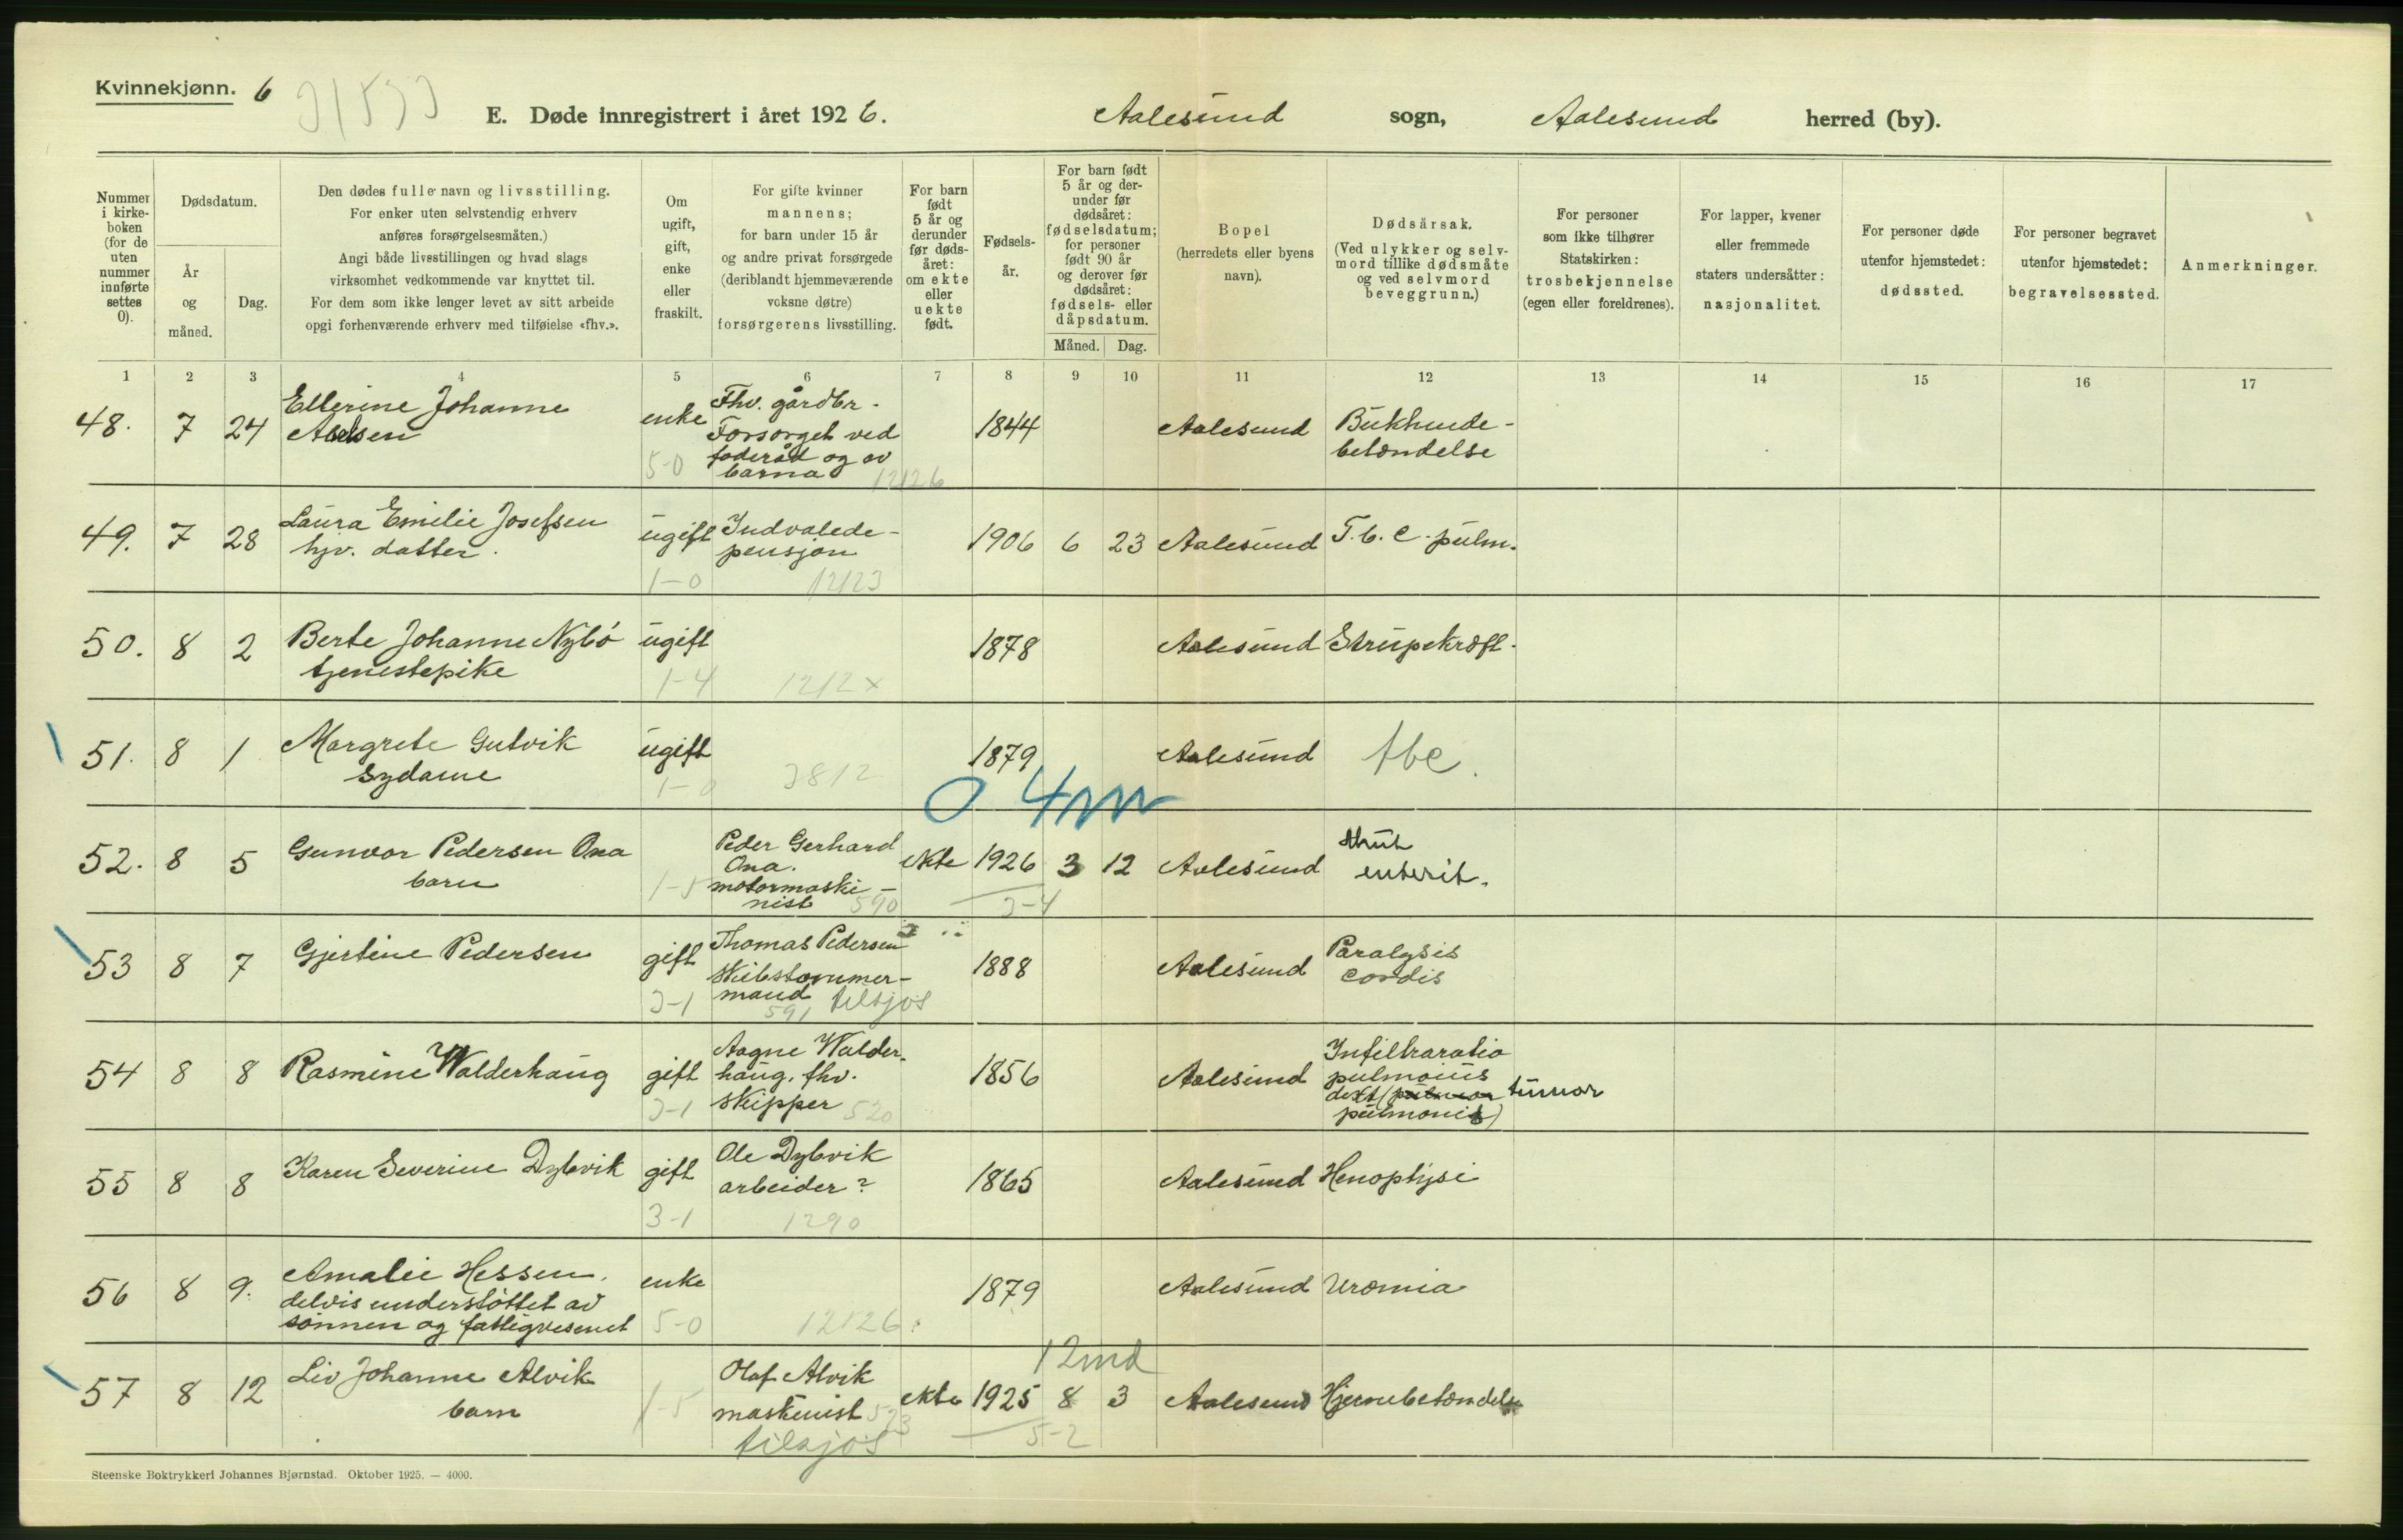 Kvinnekjønn. 6
E. Døde innregistrert i året 1926. Aalesund sogn, Aalesund herred (by).
Nummer i kirke-boken (for de uten nummer innførte settes 0).
Dødsdatum.
År og måned.
Dag.
Den dødes fulle navn og livsstilling.
For enker uten selvstendig erhverv
anføres forsørgelsesmåten.)
Angi både livsstillingen og hvad slags
virksomhet vedkommende var knyttet til.
For dem som ikke lenger levet av sitt arbeide
opgi forhenværende erhverv med tilføielse «fhv.».
Om ugift, gift, enke eller fraskilt.
For gifte kvinner
mannens;
for barn under 15 år
og andre privat forsørgede
(deriblandt hjemmeværende
voksne døtre)
forsørgerens livsstilling.
For barn født 5 år og derunder før døds-året: om ekte eller uekte født.
Fødsels-år.
For barn født 5 år og der-under før dødsåret: fødselsdatum; for personer født 90 år og derover før dødsåret: fødsels- eller dåpsdatum.
Måned. Dag.
Bopel
(herredets eller byens
navn).
Dødsårsak.
(Ved ulykker og selv-
mord tillike dødsmåte
og ved selvmord
beveggrunn.)
For personer
som ikke tilhører
Statskirken:
trosbekjennelse
(egen eller foreldrenes).
For lapper, kvener
eller fremmede
staters undersåtter:
nasjonalitet.
For personer døde
utenfor hjemstedet:
dødssted.
For personer begravet
utenfor hjemstedet:
begravelsessted.
Anmerkninger.
1 2 3 4 5 6 7 8 9 10 11 12 13 14 15 16 17
48. 7 24 Ellerine Johanne enke Fhv. gårdbr. 1844 Aalesund Bukhinde-
Forsørget ved betændelse
føderåd og av
5-0 barna 12126
49. 7 28 Laura Emilie Josefsen ugift Indvalede- 1906 6 23 Aalesund T.b.c. pulm.
hjv. datter. pensjon
1-0 12123
50. 8 2 Berte Johanne Nybø ugift 1878 Aalesund Strupekræft.
tjenestepike
1-4 1212x
51. 8 1 Margrete Gutvik ugift 1879 Aalesund tbc.
Sydame
1-0
0 4
52. 8 5 Gunvor Pedersen Ona Peder Gerhard ekte 1926 3 12 Aalesund Akut
barn Ona. enterit.
1-5 motormaski-
nist 590
53 8 7 Gjertine Pedersen gift Thomas Pedersen 1888 Aalesund Paralysis
skibstømmer- cordis
mand tilsjøs
591
54 8 8 Rasmine Walderhaug gift Aagne Walder- 1856 Aalesund Infiltraratio
haug, fhv. pulmonis
skipper 520 dext ( tumor
pulmonis)
55 8 8 Karen Severine Dybvik gift Ole Dybvik 1865 Aalesund Hemoptysi
arbeider?
3-1 1290
56 8 9. Amalie Hessen, enke 1879 Aalesund Uræmia
delvis understøttet av
sønnen og fattigvesenet 5-0 12126
12md
57 8 12 Liv Johanne Alvik Olaf Alvik ekte 1925 8 3 Aalesund Hjernebetændelse
barn 1-5 maskinist
tilsjøs 5-2
Steenske Boktrykkeri Johannes Bjørnstad. Oktober 1925. — 4000.